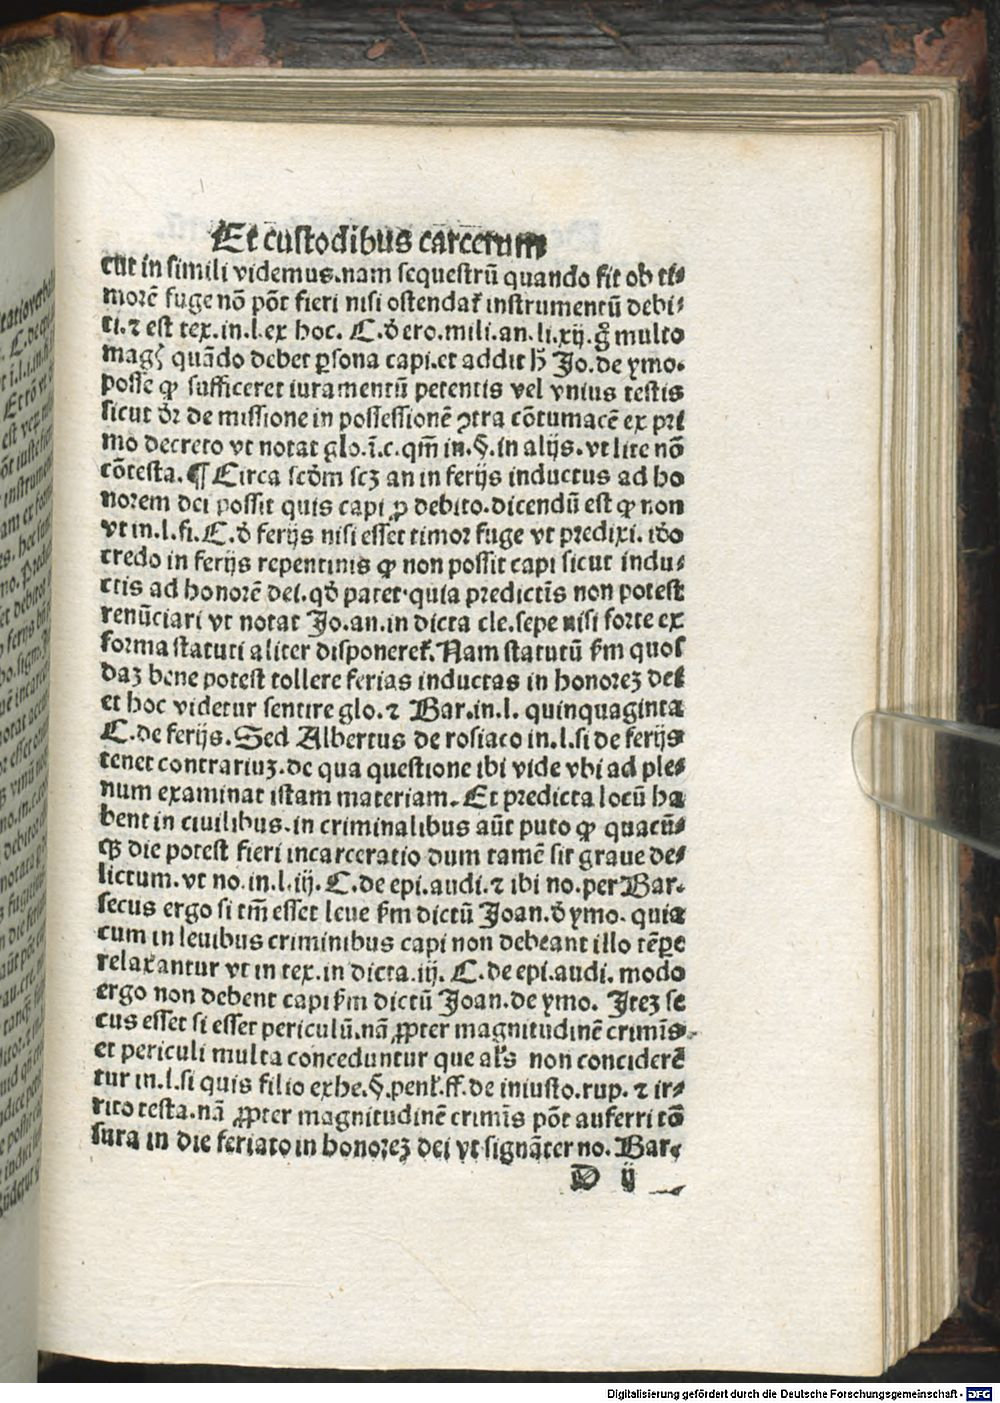 Et custodibus carcerum
cut in simili videmus.nam sequestrū quando fit ob ti⸗
morē fuge nō pōt fieri nisi ostendat᷑ instrumentū debi⸗
ti.⁊ est tex.in.l.ex hoc. C.ð ero.mili.an.li.xij.g̊ multo
magꝭ quādo debet ꝑsona capi.et addit ħ Jo.de ymo.
posse ꝙ sufficeret iuramentū petentis vel vnius testis
sicut ðr de missione in possessionē ꝯtra cōtumacē ex pri
mo decreto vt notat glo.ī.c.qm̄ in.§.in alijs.vt lite nō
cōtesta.¶ Circa scðm scꝫ an in ferijs inductus ad ho
norem dei possit quis capi ꝓ debito.dicendū est ꝙ non
vt in.l.fi.C.ð ferijs nisi esset timor fuge vt predixi. iðo
credo in ferijs repentinis ꝙ non possit capi sicut indu⸗
ctis ad honorē dei.qð patet.quia predictīs non potest
renūciari vt notat Jo.an.in dicta cle.sepe nisi forte ex
forma statuti aliter disponeret᷑.Nam statutū ẜm quos
daꝫ bene potest tollere ferias inductas in honoreꝫ dei
et hoc videtur sentire glo.⁊ Bar.in.l. quinquaginta
C.de ferijs.Sed Albertus de rosiaco in.l.si de ferijs
tenet contrariuꝫ.de qua questione ibi vide vbi ad ple⸗
num examinat istam materiam.Et predicta locū ha
bent in ciuilibus.in criminalibus aūt puto ꝙ quacū⸗
qꝫ die potest fieri incarceratio dum tamē sit graue de⸗
lictum.vt no.in.l.iij.C.de epi.audi.⁊ ibi no.per Bar.
secus ergo si tm̄ esset leue ẜm dictū Joan.ð ymo. quia
cum in leuibus criminibus capi non debeant illo tēꝑe
relaxantur vt in tex.in dicta.iij. C.de epi.audi. modo
ergo non debent capi ẜm dictū Joan.de ymo. Jteꝫ se
cus esset si esset periculū.nā ꝓpter magnitudinē crimīs.
et periculi multa conceduntur que al's non conciderē
tur in.l.si quis filio exhe.§.penl̄.ff.de iniusto.rup.⁊ ir⸗
rito testa.nā ꝓpter magnitudinē crimīs pōt auferri tō
sura in die feriato in honoreꝫ dei vt signāter no.Bar.
D ij
Digitalisierung gefördert durch die Deutsche Forschungsgemeinschaft - DFG